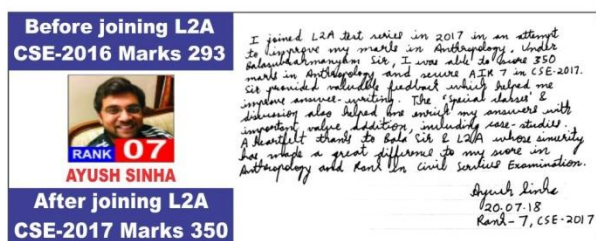 Before joining L2A
CSE-2016 Marks 293
RANK 07
AYUSH SINHA
After joining L2A
CSE-2017 Marks 350
I joined L2A test series in 2017 in an attempt
to improve my marks in Anthropology. Under
Balasubrahmanyam Sir, I was able to score 350
marks in Anthropology and secure AIR 7 in CSE-2017.
Sir provided valuable feedback which helped me
improve answer-writing. The 'special classes' &
discussion also helped me enrich my answers with
important value addition, including case-studies.
A heartfelt thanks to Bala Sir & L2A whose sincerity
has made a great difference to my score in
Anthropology and Rank in Civil Services Examination.
Ayush Sinha
20.07.18
Rank-7, CSE-2017